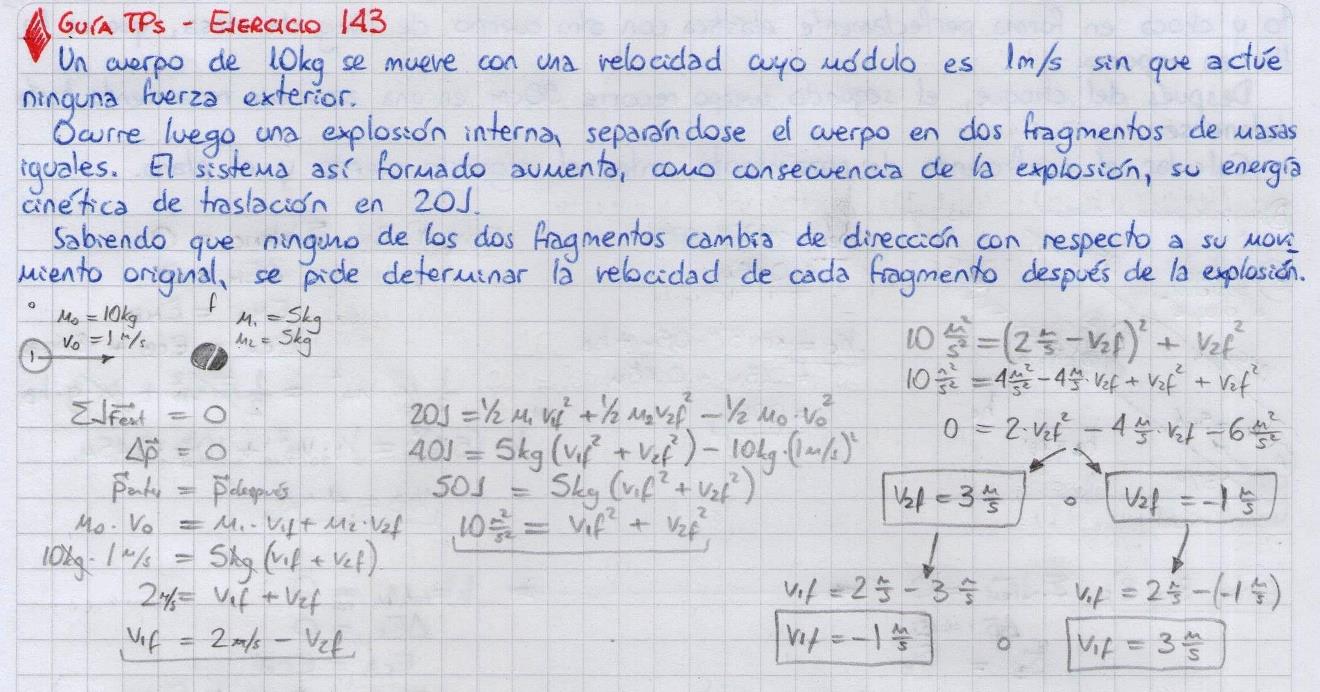 GUÍA TPs - EJERCICIO 143
Un cuerpo de 10kg se mueve con una velocidad cuyo módulo es 1m/s sin que actúe
ninguna fuerza exterior.
Ocurre luego una explosión interna, separándose el cuerpo en dos fragmentos de masas
iguales. El sistema así formado aumenta, como consecuencia de la explosión, su energía
cinética de traslación en 20J.
Sabiendo que ninguno de los dos fragmentos cambia de dirección con respecto a su movi-
miento original, se pide determinar la velocidad de cada fragmento después de la explosión.
o
m₀ = 10kg
v₀ = 1 m/s
1
f
m₁ = 5kg
m₂ = 5kg
ΣJ⃗Fext = 0
Δp⃗ = 0
p⃗antes = p⃗después
m₀ · v₀ = m₁ · v₁f + m₂ · v₂f
10kg · 1 m/s = 5kg (v₁f + v₂f)
2 m/s = v₁f + v₂f
v₁f = 2 m/s - v₂f
20J = ½ m₁ v₁f² + ½ m₂ v₂f² - ½ m₀ · v₀²
40J = 5kg (v₁f² + v₂f²) - 10kg · (1 m/s)²
50J = 5kg (v₁f² + v₂f²)
10 m²/s² = v₁f² + v₂f²
10 m²/s² = (2 m/s - v₂f)² + v₂f²
10 m²/s² = 4 m²/s² - 4 m/s · v₂f + v₂f² + v₂f²
0 = 2 · v₂f² - 4 m/s · v₂f - 6 m²/s²
v₂f = 3 m/s o v₂f = -1 m/s
v₁f = 2 m/s - 3 m/s
v₁f = 2 m/s - (-1 m/s)
v₁f = -1 m/s o v₁f = 3 m/s